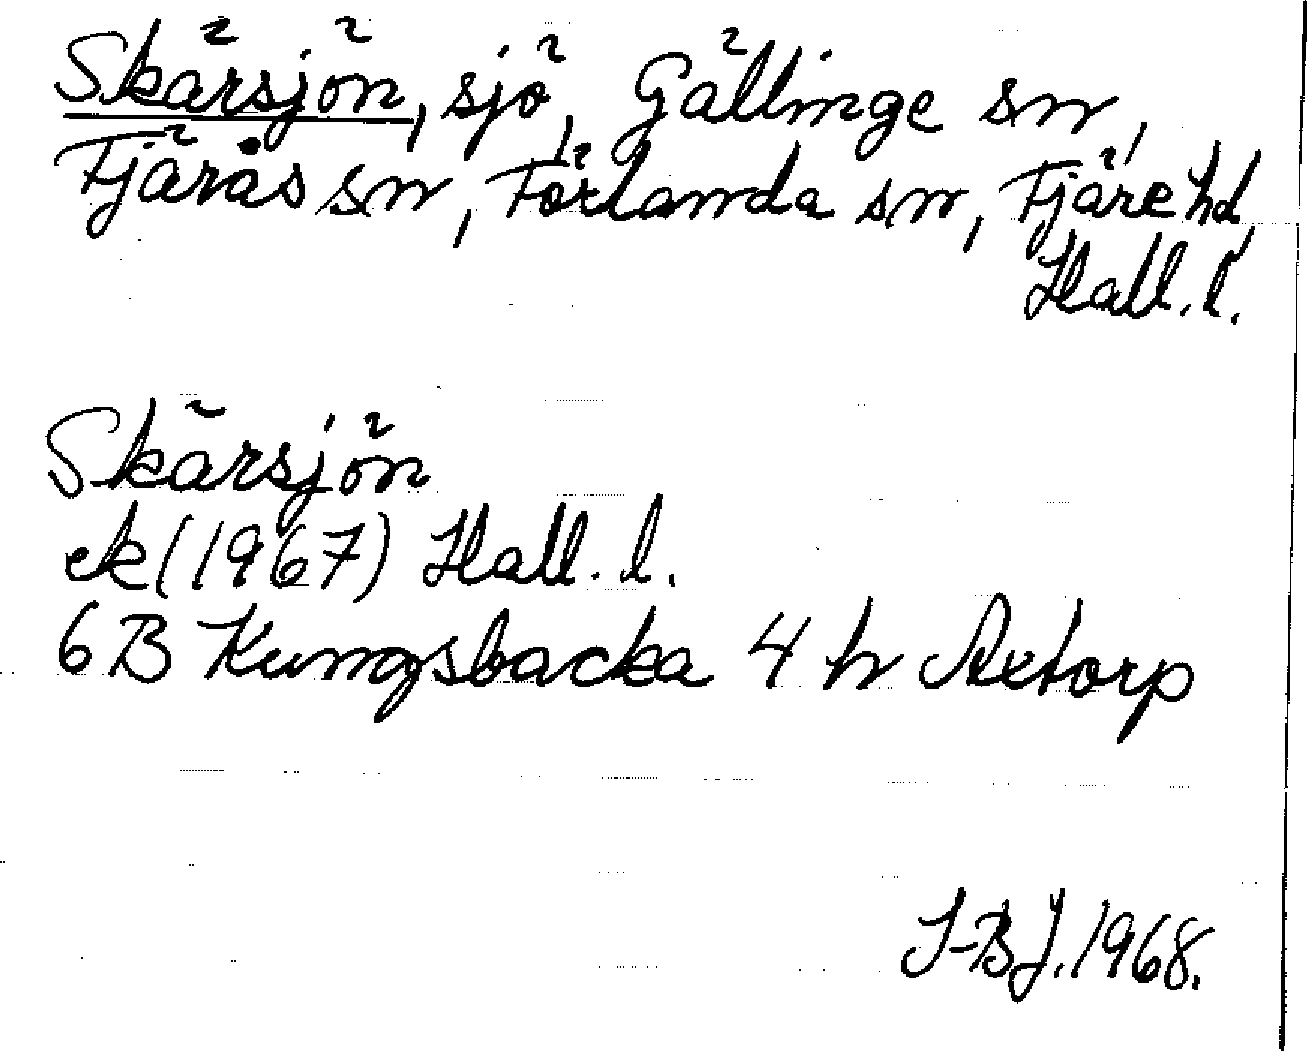 Skärsjön, sjö, Gällinge sn,
Fjärås sn, Förlanda sn, Fjäre hd,
Hall. l.
Skärsjön
ek (1967) Hall. l.
6B Kungsbacka 4 h Axtorp
I-BJ. 1968.